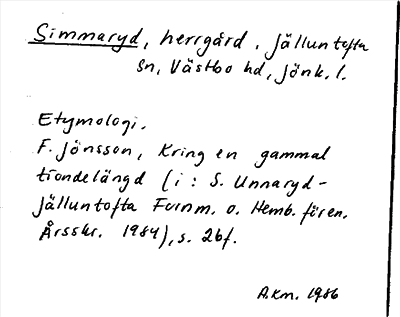 Simmaryd, herrgård. Jälluntofta
sn, Västbo hd, Jönk. l.
Etymologi.
F. Jönsson, Kring en gammal
tiondelängd (i: S. Unnaryd-
Jälluntofta Fornm. o. Hemb. fören.
Årsskr. 1984), s. 26f.
A.Km. 1986